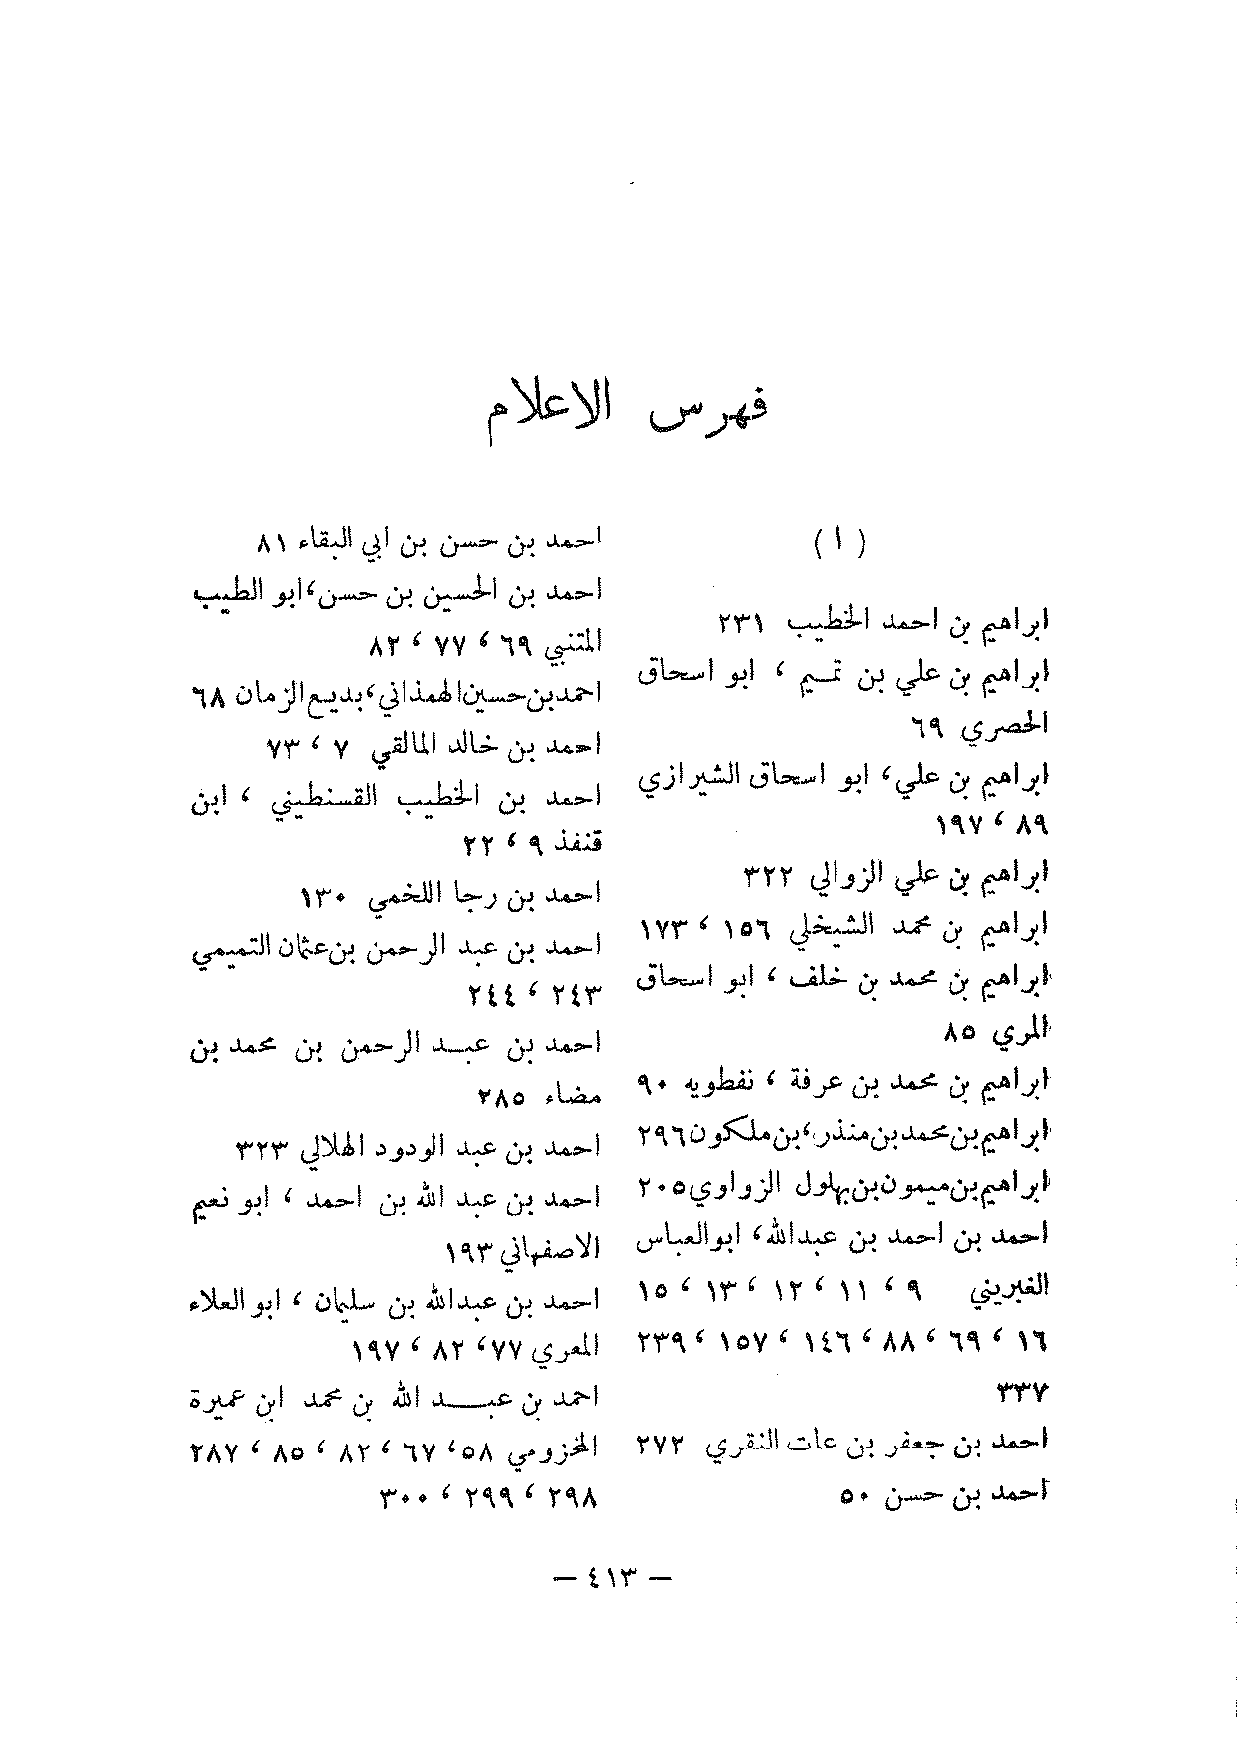 فهرس الاعلام
( ا )
ابراهيم بن احمد الخطيب ٢٣١
ابراهيم بن علي بن تميم ، ابو اسحاق
الحصري ٦٩
ابراهيم بن علي، ابو اسحاق الشيرازي
٨٩ ، ١٩٧
ابراهيم بن علي الزوالي ٣٢٢
ابراهيم بن محمد الشيخلي ١٥٦ ، ١٧٣
ابراهيم بن محمد بن خلف ، ابو اسحاق
المري ٨٥
ابراهيم بن محمد بن عرفة ، نفطويه ٩٠
ابراهيم بن محمد بن منذر، بن ملكون ٢٩٦
ابراهيم بن ميمون بن بهلول الزواوي ٢٠٥
احمد بن احمد بن عبدالله، ابو العباس
الغبريني ٩ ، ١١ ، ١٢ ، ١٣ ، ١٥
١٦ ، ٦٩ ، ٨٨ ، ١٤٦ ، ١٥٧ ، ٢٣٩
٣٣٧
احمد بن جعفر بن عات النقري ٢٧٢
احمد بن حسن ٥٠
احمد بن حسن بن ابي البقاء ٨١
احمد بن الحسين بن حسن، ابو الطيب
المتنبي ٦٩ ، ٧٧ ، ٨٢
احمد بن حسين الهمذاني، بديع الزمان ٦٨
احمد بن خالد المالقي ٧ ، ٧٣
احمد بن الخطيب القسنطيني ، ابن
قنفذ ٩ ، ٢٢
احمد بن رجا اللخمي ١٣٠
احمد بن عبد الرحمن بن عثمان التميمي
٢٤٣ ، ٢٤٤
احمد بن عبد الرحمن بن محمد بن
مضاء ٢٨٥
احمد بن عبد الودود الهلالي ٣٢٣
احمد بن عبد الله بن احمد ، ابو نعيم
الاصفهاني ١٩٣
احمد بن عبدالله بن سليمان ، ابو العلاء
المعري ٧٧، ٨٢ ، ١٩٧
احمد بن عبد الله بن محمد ابن عميرة
المخزومي ٥٨، ٦٧ ، ٨٢ ، ٨٥ ، ٢٨٧
٢٩٨ ، ٢٩٩ ، ٣٠٠
— ٤١٣ —